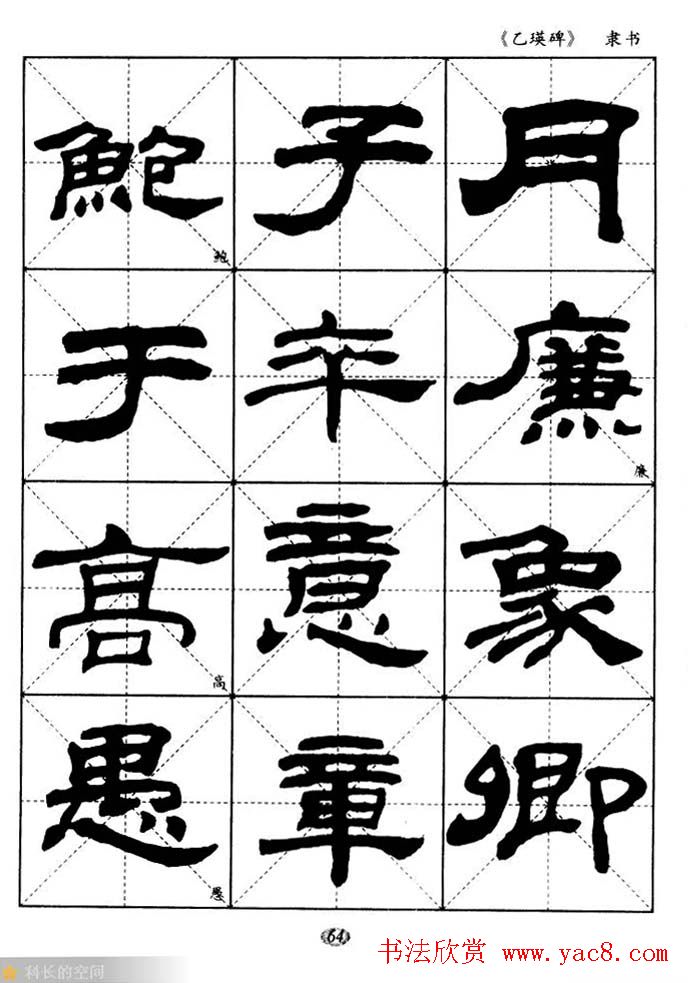 《乙瑛碑》 隶书
月廉象卿
子卒意章
鮑于高愚
廉
鲍
高
愚
64
书法欣赏 www.yac8.com
科长的空间